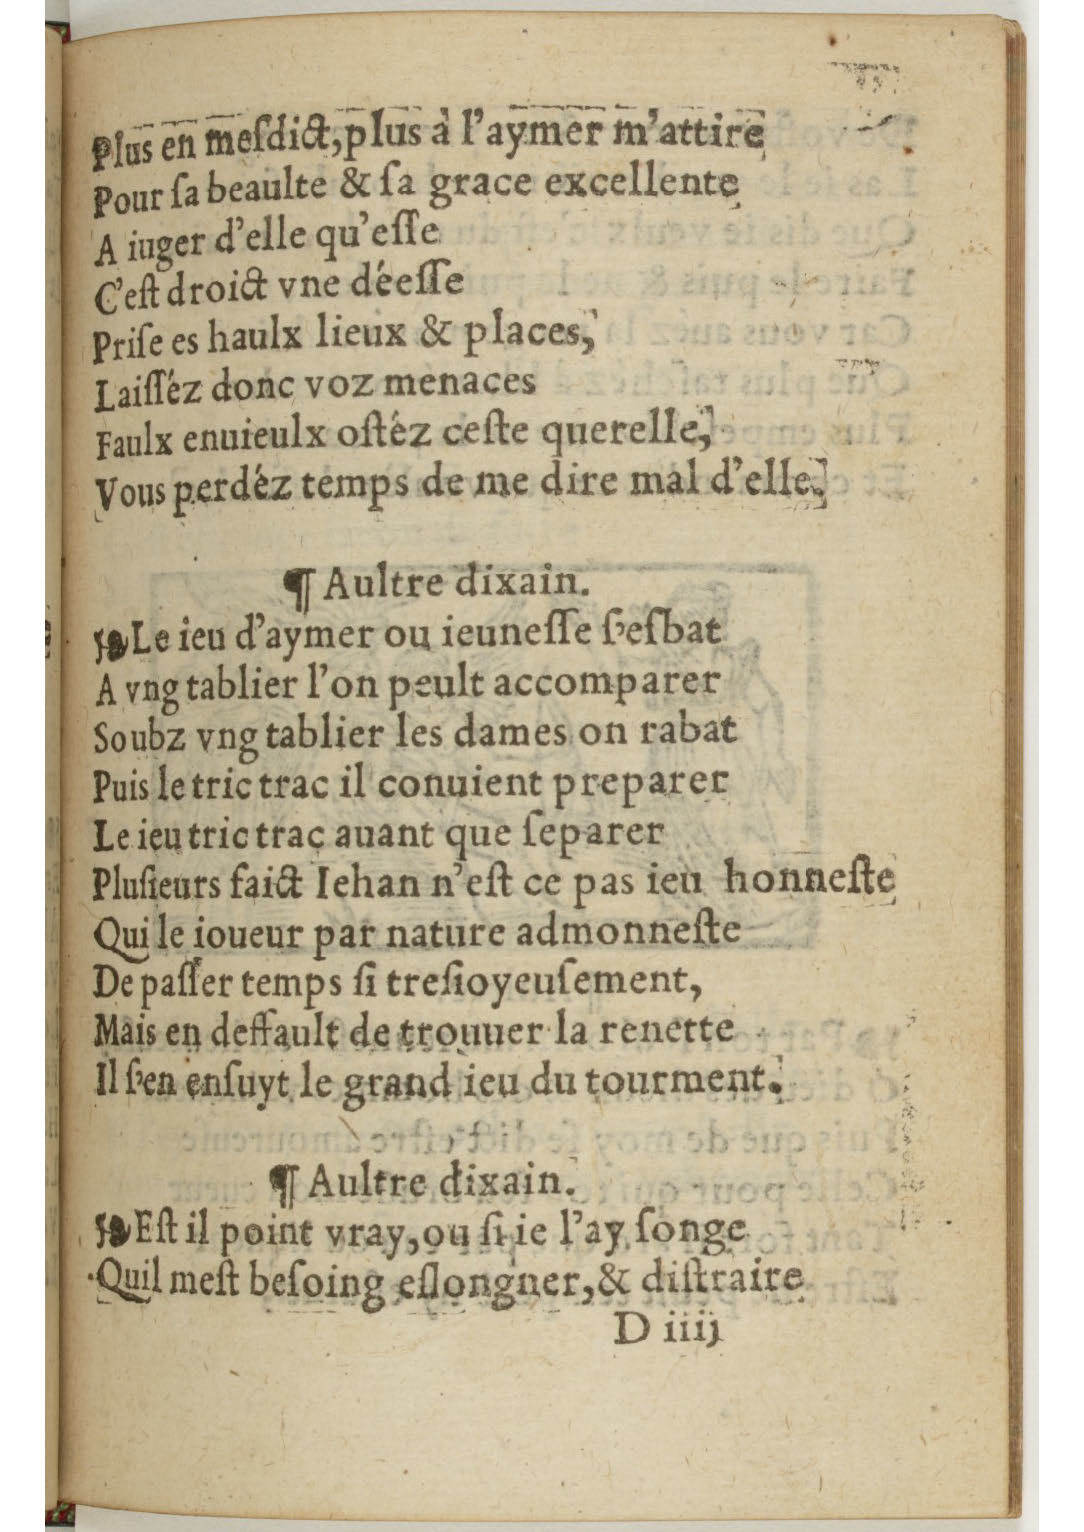 Plus en meſdict,plus à l'aymer m'attire
Pour ſa beaulte & ſa grace excellente
A iuger d'elle qu'eſſe
C'eſt droict vne déeſſe
Priſe es haulx lieux & places,
Laiſſéz donc voz menaces
Faulx enuieulx oſtéz ceſte querelle,
Vous perdéz temps de me dire mal d'elle.
¶ Aultre dixain.
❧Le ieu d'aymer ou ieuneſſe ſ'eſbat
A vng tablier l'on peult accomparer
Soubz vng tablier les dames on rabat
Puis le tric trac il conuient preparer
Le ieu tric trac auant que ſeparer
Pluſieurs faict Iehan n'eſt ce pas ieu honneſte
Qui le ioueur par nature admonneſte
De paſſer temps ſi treſioyeuſement,
Mais en deffault de trouuer la renette
Il ſ'en enſuyt le grand ieu du tourment.
¶ Aultre dixain.
❧Eſt il point vray,ou ſi ie l'ay ſonge
Quil meſt beſoing eſlongner,& diſtraire
D iiij